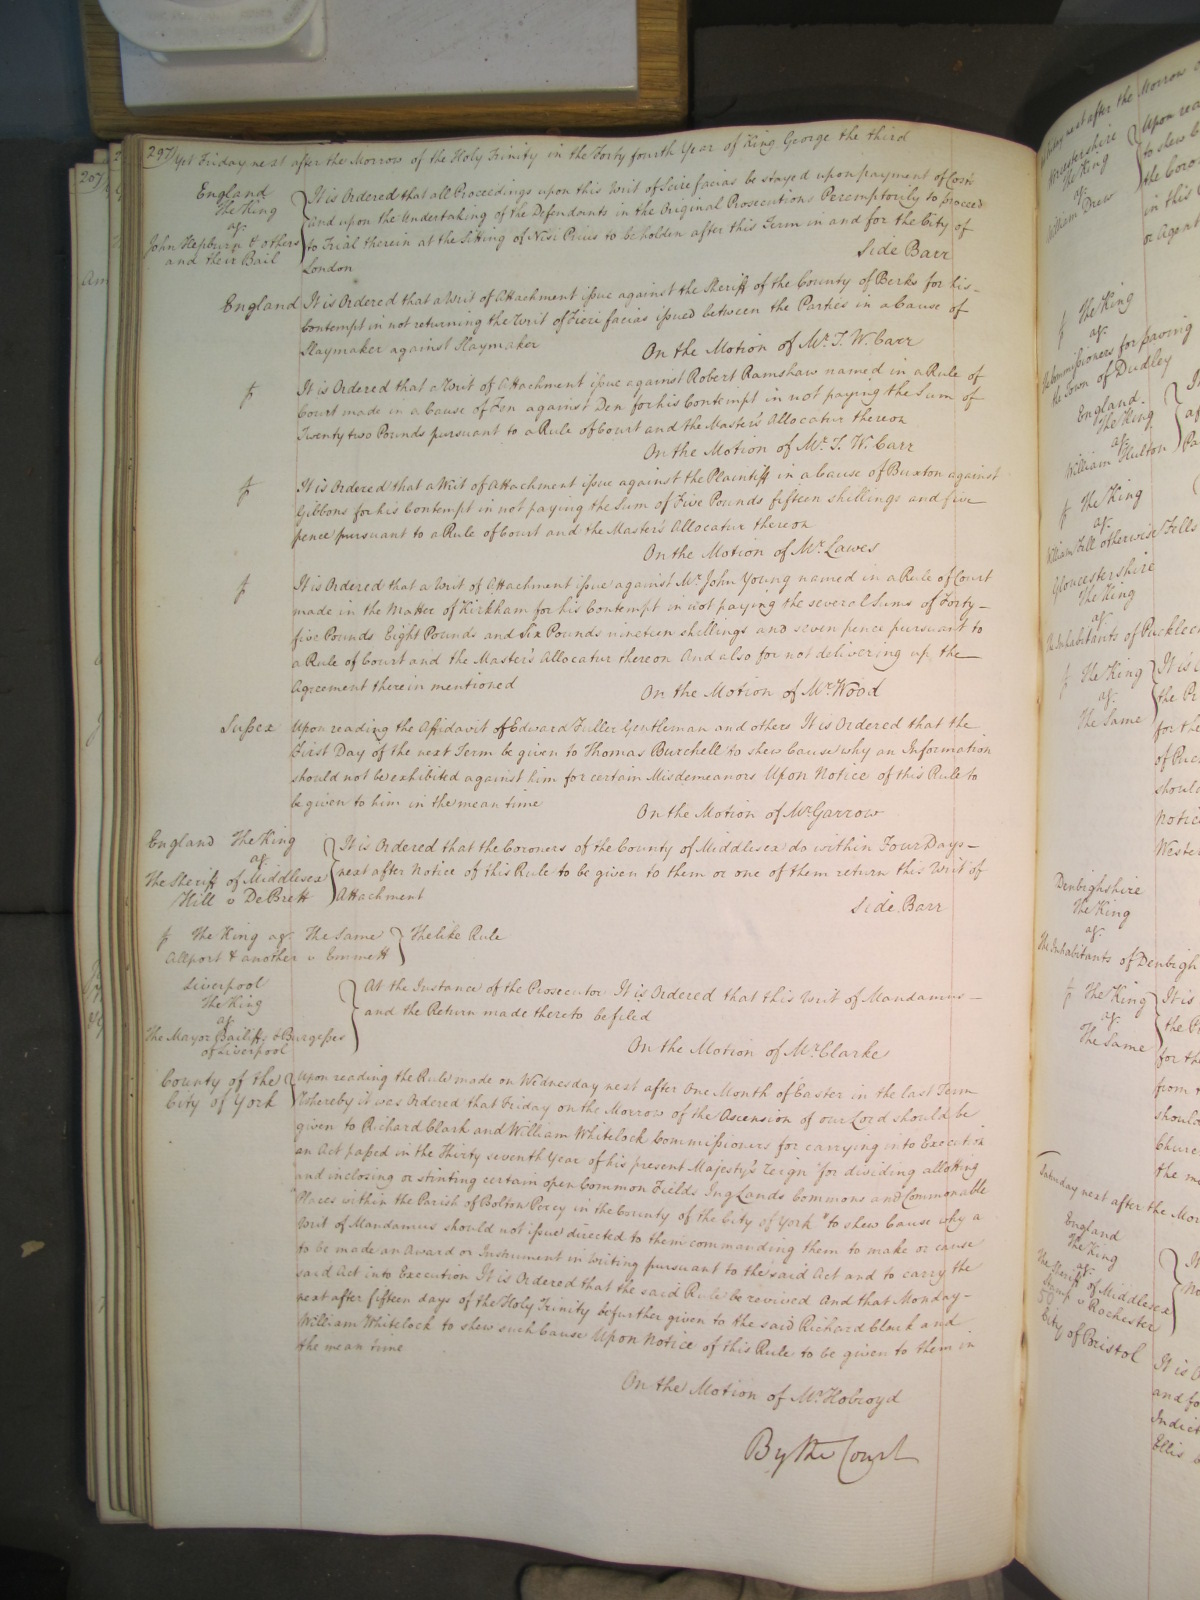 297) Yet Friday next after the Morrow of the Holy Trinity in the Forty fourth Year of King George the third
England
The King
agt
John Hepburn & others
and their Bail
It is Ordered that all Proceedings upon this Writ of Scire facias be stayed upon payment of Costs
and upon the Undertaking of the Defendants in the Original Prosecutions Peremptorily to proceed
to Trial therein at the Sitting of Nisi Prius to be holden after this Term in and for the City of
London
Side Barr
England It is Ordered that a Writ of Attachment issue against the Sheriff of the County of Berks for his
Contempt in not returning the Writ of Fieri facias issued between the Parties in a Cause of
Slaymaker against Slaymaker
On the Motion of Mr. T. W. Carr
It is Ordered that a Writ of Attachment issue against Robert Ramshaw named in a Rule of
Court made in a Cause of Fen against Den for his Contempt in not paying the Sum of
Twenty two Pounds pursuant to a Rule of Court and the Master's Allocatur thereon
On the Motion of Mr. T. W. Carr
It is Ordered that a Writ of Attachment issue against the Plaintiff in a Cause of Buxton against
Gibbons for his Contempt in not paying the Sum of Five Pounds fifteen shillings and five
pence pursuant to a Rule of Court and the Master's Allocatur thereon
On the Motion of Mr. Lawes
It is Ordered that a Writ of Attachment issue against Mr. John Young named in a Rule of Court
made in the Matter of Kirkham for his Contempt in not paying the several Sums of Forty
five Pounds Eight Pounds and Six Pounds nineteen shillings and seven pence pursuant to
a Rule of Court and the Master's Allocatur thereon And also for not delivering up the
Agreement therein mentioned
On the Motion of Mr. Wood
Sussex Upon reading the Affidavit of Edward Fuller Gentleman and others It is Ordered that the
First Day of the next Term be given to Thomas Burchell to shew Cause why an Information
should not be exhibited against him for certain Misdemeanors Upon Notice of this Rule to
be given to him in the mean time
On the Motion of Mr. Garrow
England The King
agt
The Sheriff of Middlesex
Hill v De Brett
It is Ordered that the Coroners of the County of Middlesex do within Four Days
next after Notice of this Rule to be given to them or one of them return this Writ of
Attachment
Side Barr
The King agt. The Same
Allport & another v Emmett
The like Rule
Liverpool
The King
agt
The Mayor Bailiffs & Burgesses
of Liverpool
At the Instance of the Prosecutor It is Ordered that this Writ of Mandamus
and the Return made thereto be filed
On the Motion of Mr. Clarke
County of the
City of York
Upon reading the Rule made on Wednesday next after One Month of Easter in the last Term
Whereby it was Ordered that Friday on the Morrow of the Ascension of our Lord should be
given to Richard Clark and William Whitelock Commissioners for carrying into Execution
an Act passed in the Thirty seventh Year of his present Majesty's reign "for dividing allotting
and inclosing or stinting certain open Common Fields Ing Lands Commons and Commonable
Places within the Parish of Bolton Percy in the County of the City of York" to shew Cause why a
Writ of Mandamus should not issue directed to them commanding them to make or cause
to be made an Award or Instrument in Writing pursuant to the said Act and to carry the
said Act into Execution It is Ordered that the said Rule be revived And that Monday
next after fifteen days of the Holy Trinity be further given to the said Richard Clark and
William Whitelock to shew such Cause Upon Notice of this Rule to be given to them in
the mean time
On the Motion of Mr. Holroyd
By the Court
next after the Morrow
The King
agt
William Drew
Upon rea
to shew
the Coro
in this
The King
agt
Commissioners for paving
the Town of Dudley
England
The King
agt
William Hulton
The King
agt
William Fill otherwise Fells
Gloucestershire
The King
agt
Inhabitants of Pucklec
The King
agt
The Same
It is
the Pr
for the
of Puc
should
Notice
Wester
Denbighshire
The King
agt
The Inhabitants of Denbigh
The King
agt
The Same
It is
the P
for th
from
should
Churc
the m
Saturday next after the Mor
England
The King
agt
The Sheriff of Middlesex
v Rochester
City of Bristol
It is O
and fo
Indict
Ellis